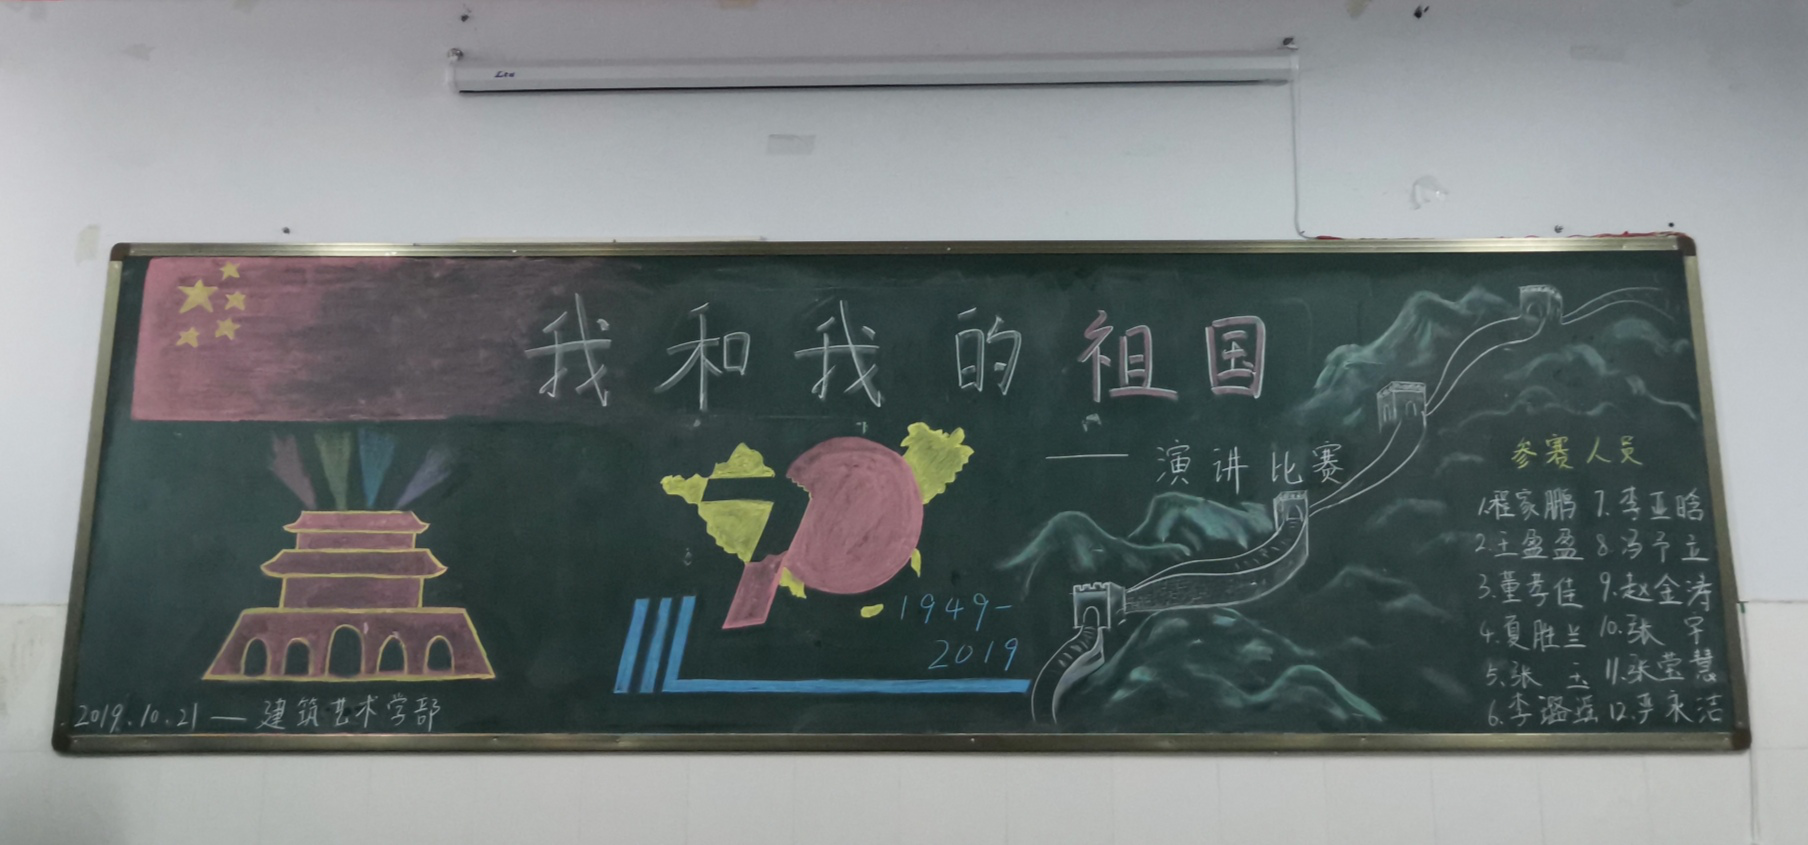 我和我的祖国
——演讲比赛
70
1949-
2019
参赛人员
1.程家鹏 7.李亚晗
2.王盈盈 8.冯予立
3.董孝佳 9.赵金涛
4.夏胜兰 10.张
5.张玉 11.张莹慧
6.李 12.尹永洁
2019.10.21—建筑艺术学部